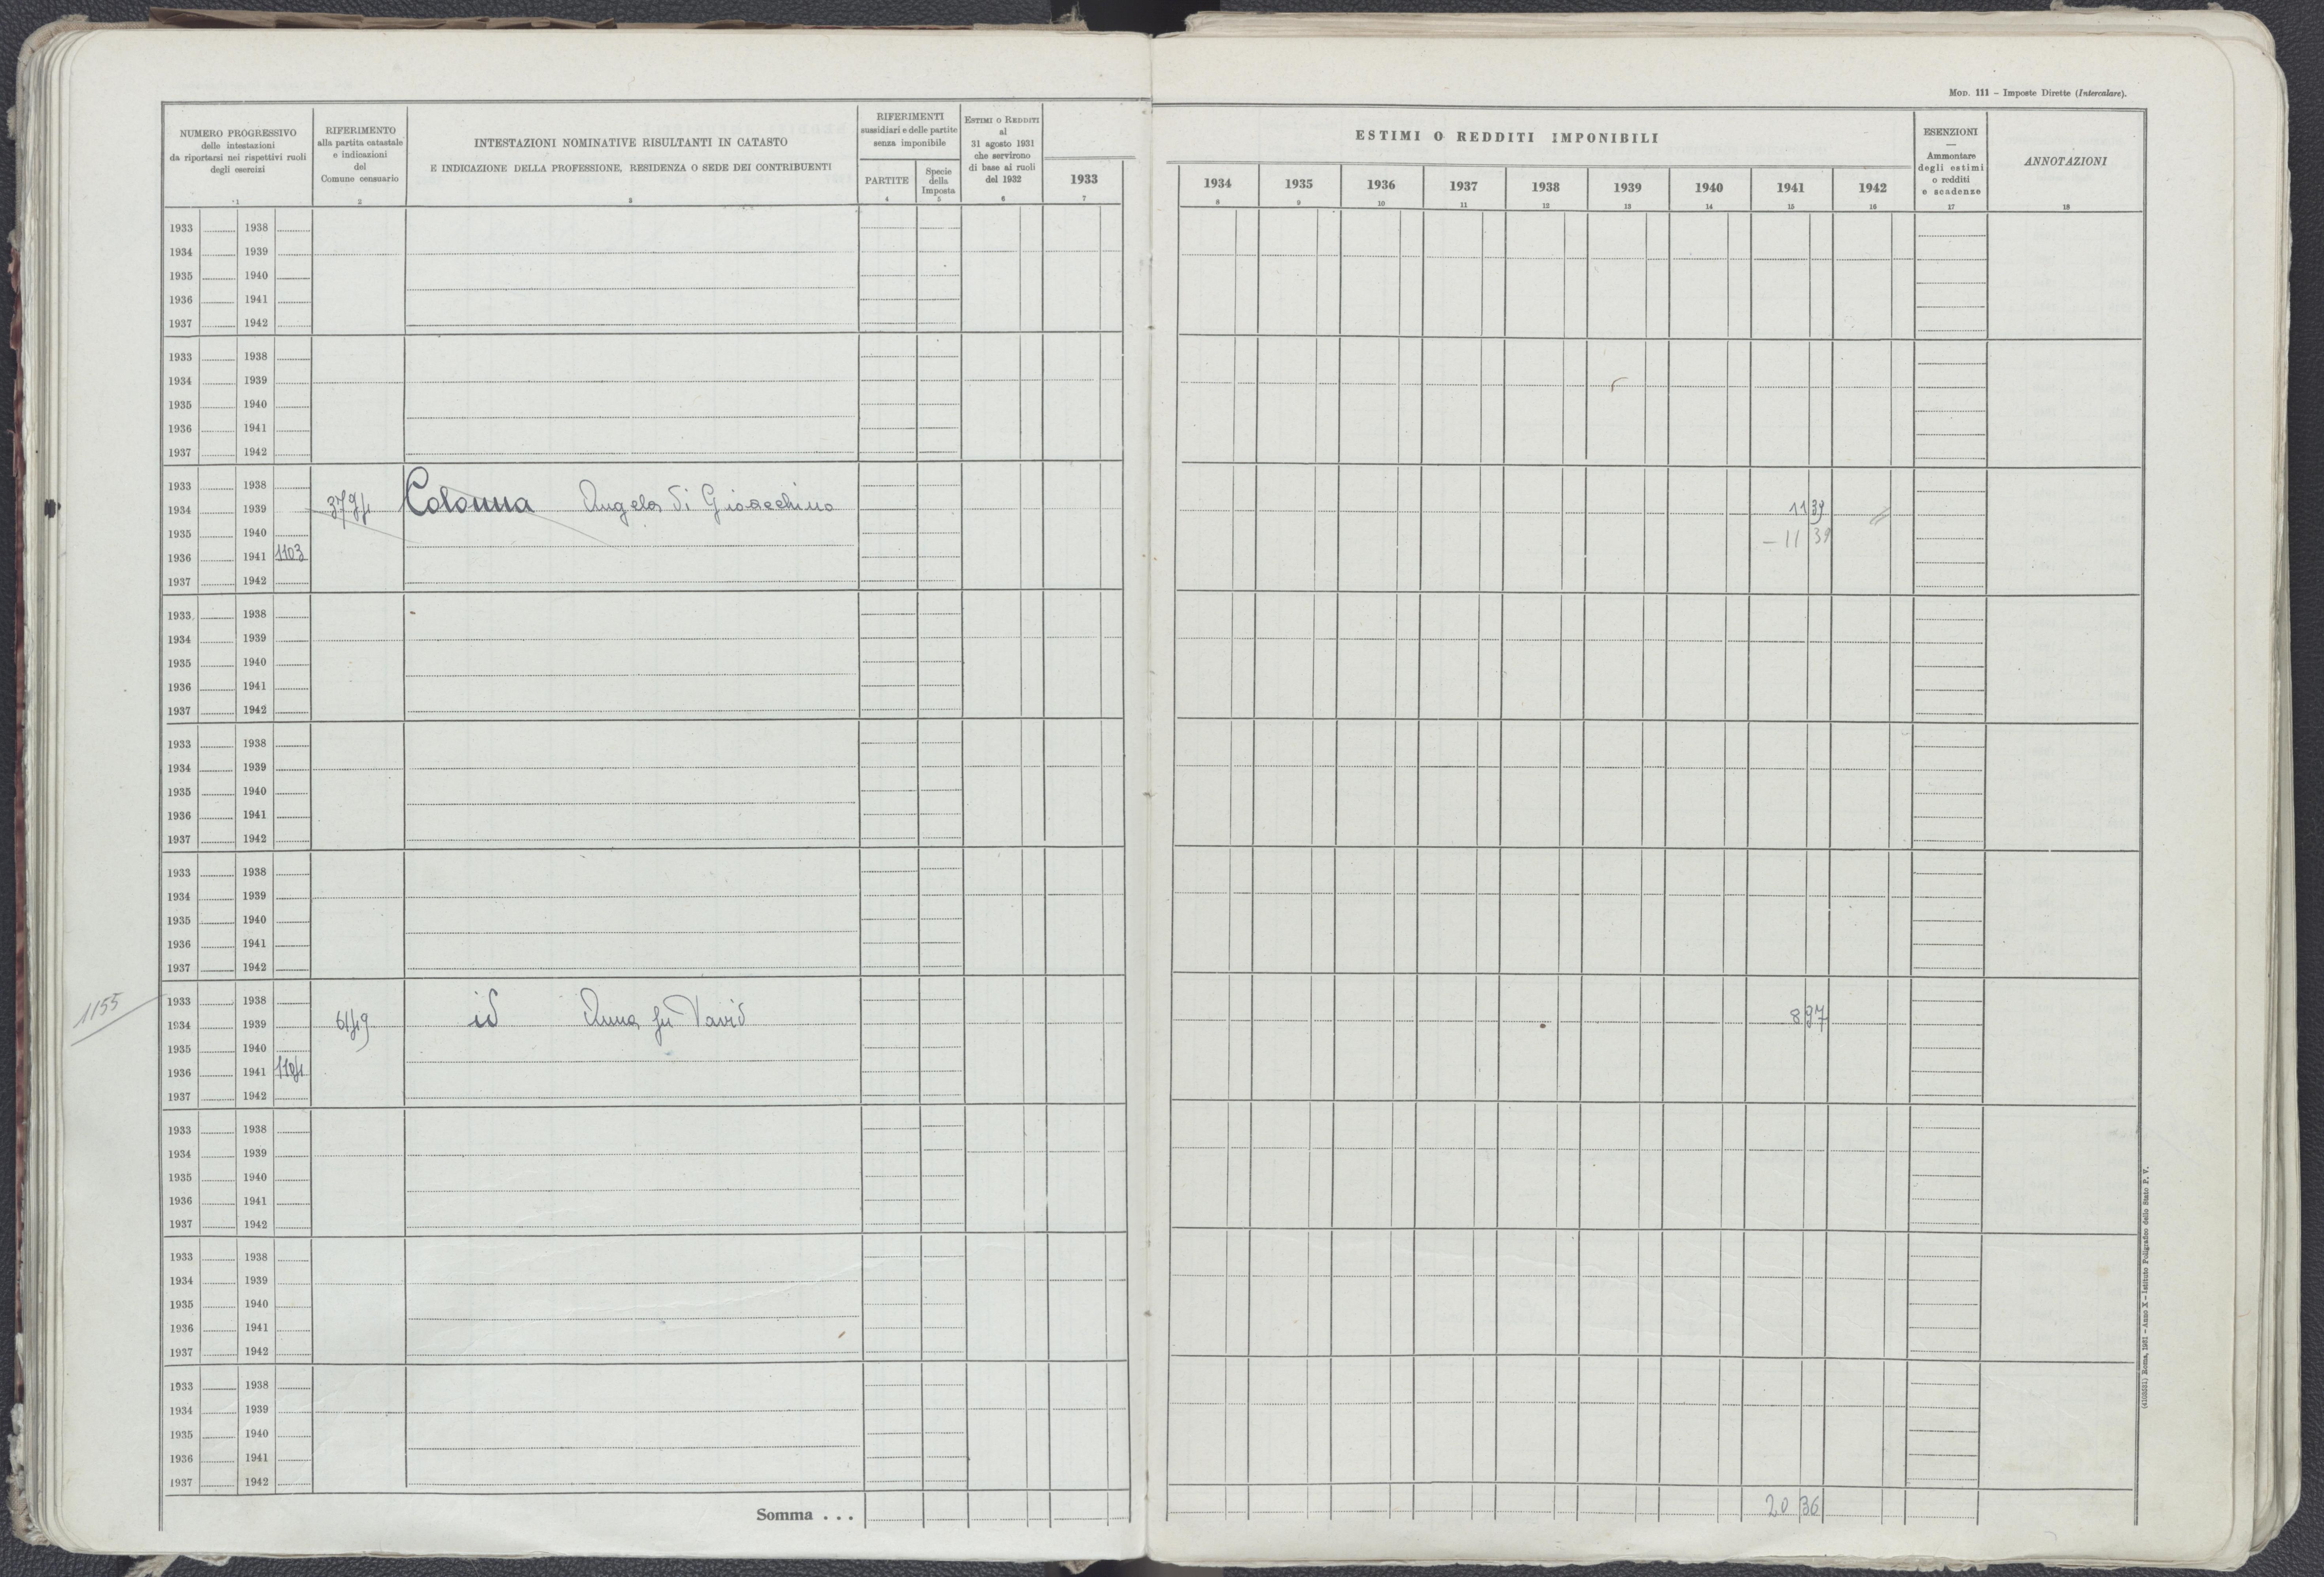 MOD. 111 – Imposte Dirette (Intercalare).
NUMERO PROGRESSIVO
delle intestazioni
da riportarsi nei rispettivi ruoli
degli esercizi
1
RIFERIMENTO
alla partita catastale
e indicazioni
del
Comune censuario
2
INTESTAZIONI NOMINATIVE RISULTANTI IN CATASTO
E INDICAZIONE DELLA PROFESSIONE, RESIDENZA O SEDE DEI CONTRIBUENTI
3
RIFERIMENTI
sussidiari e delle partite
senza imponibile
PARTITE
4
Specie
della
Imposta
5
ESTIMI O REDDITI
al
31 agosto 1931
che servirono
di base ai ruoli
del 1932
6
1933
7
ESTIMI O REDDITI IMPONIBILI
1934 1935 1936 1937 1938 1939 1940 1941 1942
8 9 10 11 12 13 14 15 16
ESENZIONI
—
Ammontare
degli estimi
o redditi
e scadenze
17
ANNOTAZIONI
18
1933 1938
1934 1939
1935 1940
1936 1941
1937 1942
1933 1938
1934 1939
1935 1940
1936 1941
1937 1942
1933 1938
1934 1939 3794 Colonna Angelo di Gioacchino 11 39
1935 1940 – 11 39
1936 1941 1103
1937 1942
1933 1938
1934 1939
1935 1940
1936 1941
1937 1942
1933 1938
1934 1939
1935 1940
1936 1941
1937 1942
1933 1938
1934 1939
1935 1940
1936 1941
1937 1942
1155 1933 1938
1934 1939 6149 id Anna fu David 8 97
1935 1940
1936 1941 1104
1937 1942
1933 1938
1934 1939
1935 1940
1936 1941
1937 1942
1933 1938
1934 1939
1935 1940
1936 1941
1937 1942
1933 1938
1934 1939
1935 1940
1936 1941
1937 1942
Somma . . . 20 36
(4103531) Roma, 1931 – Anno X – Istituto Poligrafico dello Stato P. V.